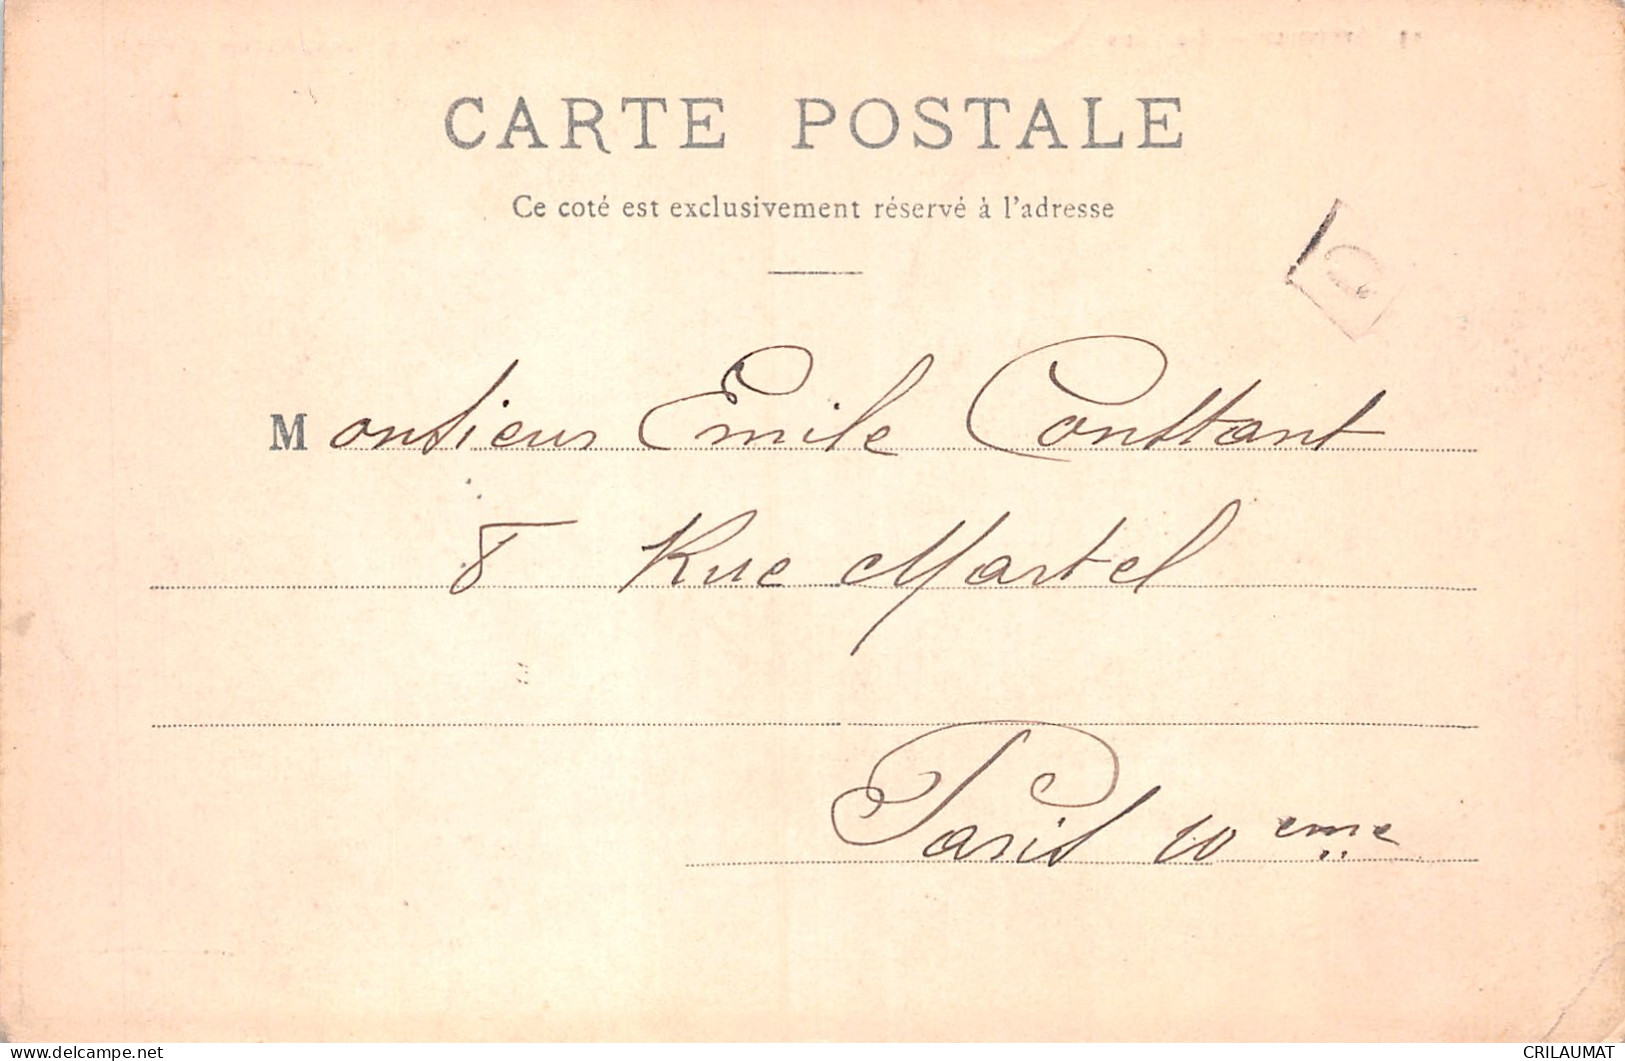 CARTE POSTALE
Ce coté est exclusivement réservé à l'adresse
Monsieur Emile Constant
8 Rue Martel
Paris 10 eme
delcampe.net
CRILAUMAT